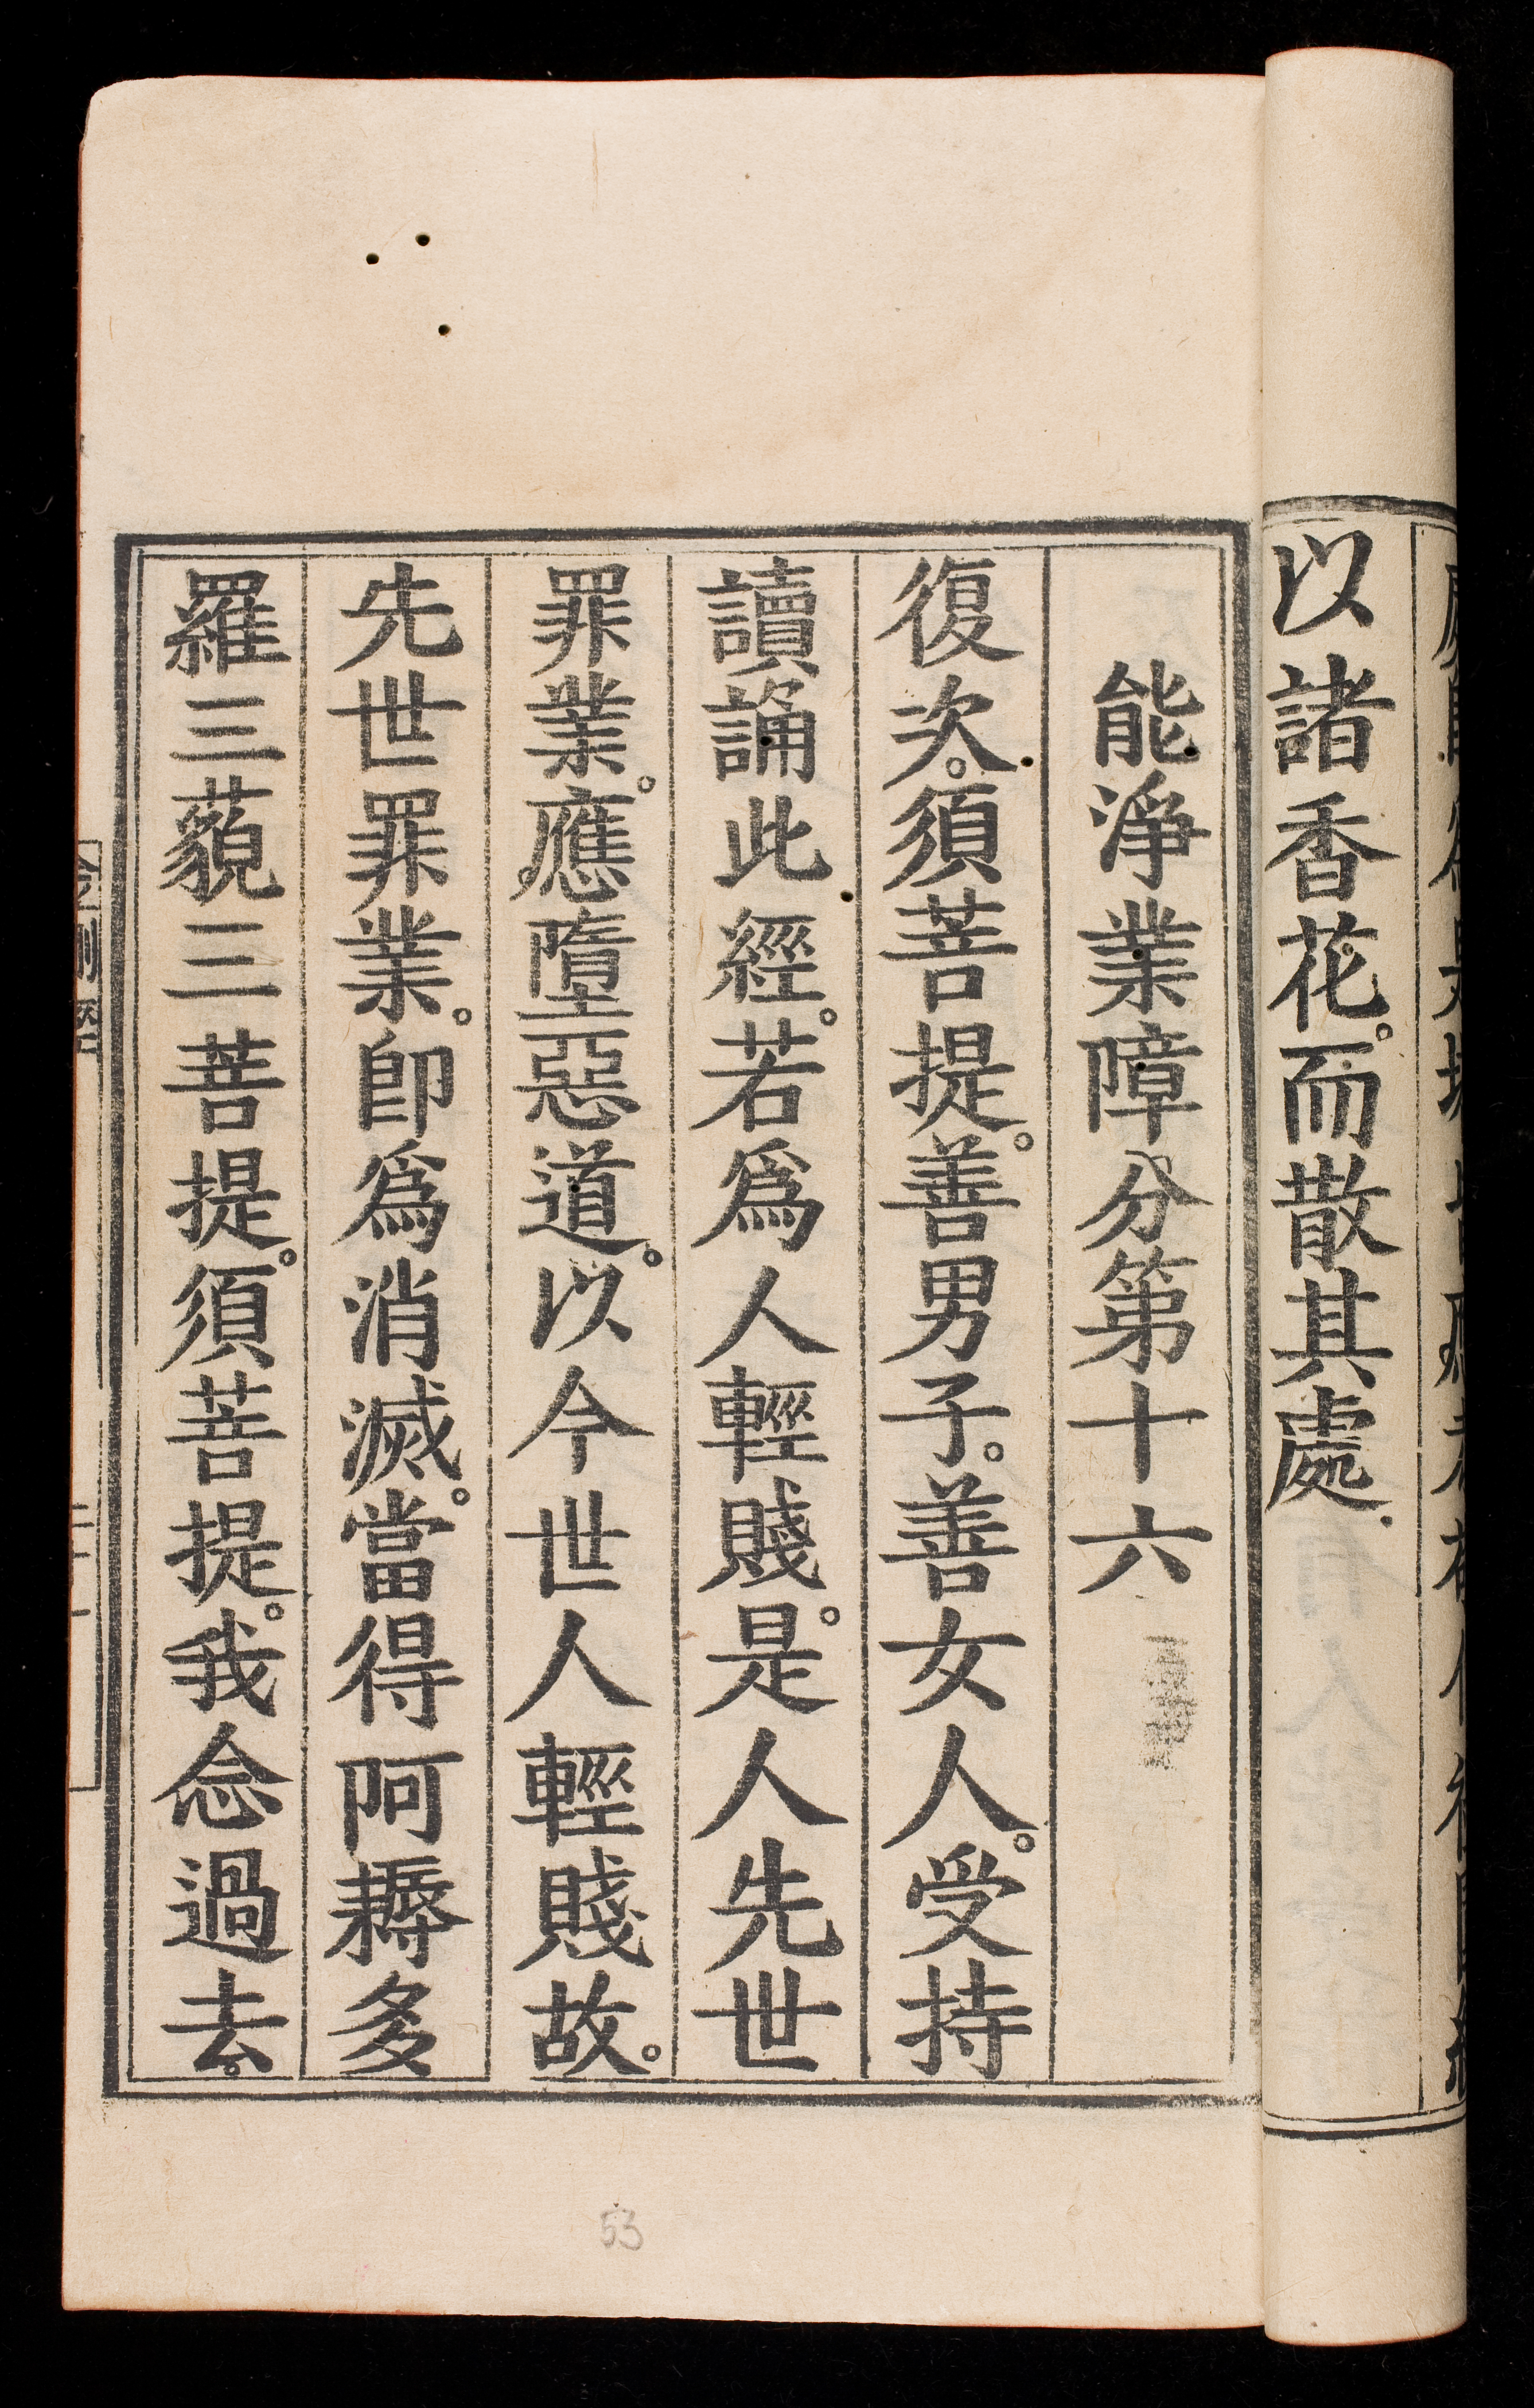 以諸香花。而散其處.
能淨業障分第十六
復次。須菩提。善男子。善女人。受持
讀誦此經。若爲人輕賤。是人先世
罪業。應墮惡道。以今世人輕賤故。
先世罪業。卽爲消滅。當得阿耨多
羅三藐三菩提。須菩提。我念過去。
53